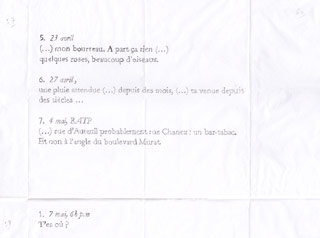 5. 23 avril
(…) mon bourreau. A part ça rien (…)
quelques roses, beaucoup d'oiseaux.
6. 27 avril,
une pluie attendue (…) depuis des mois, (…) ta venue depuis
des siècles …
7. 4 mai, RATP
(…) rue d'Auteuil probablement rue Chanez : un bar-tabac.
Et non à l'angle du boulevard Murat.
1. 7 mai, 6h p.m
T'es où ?